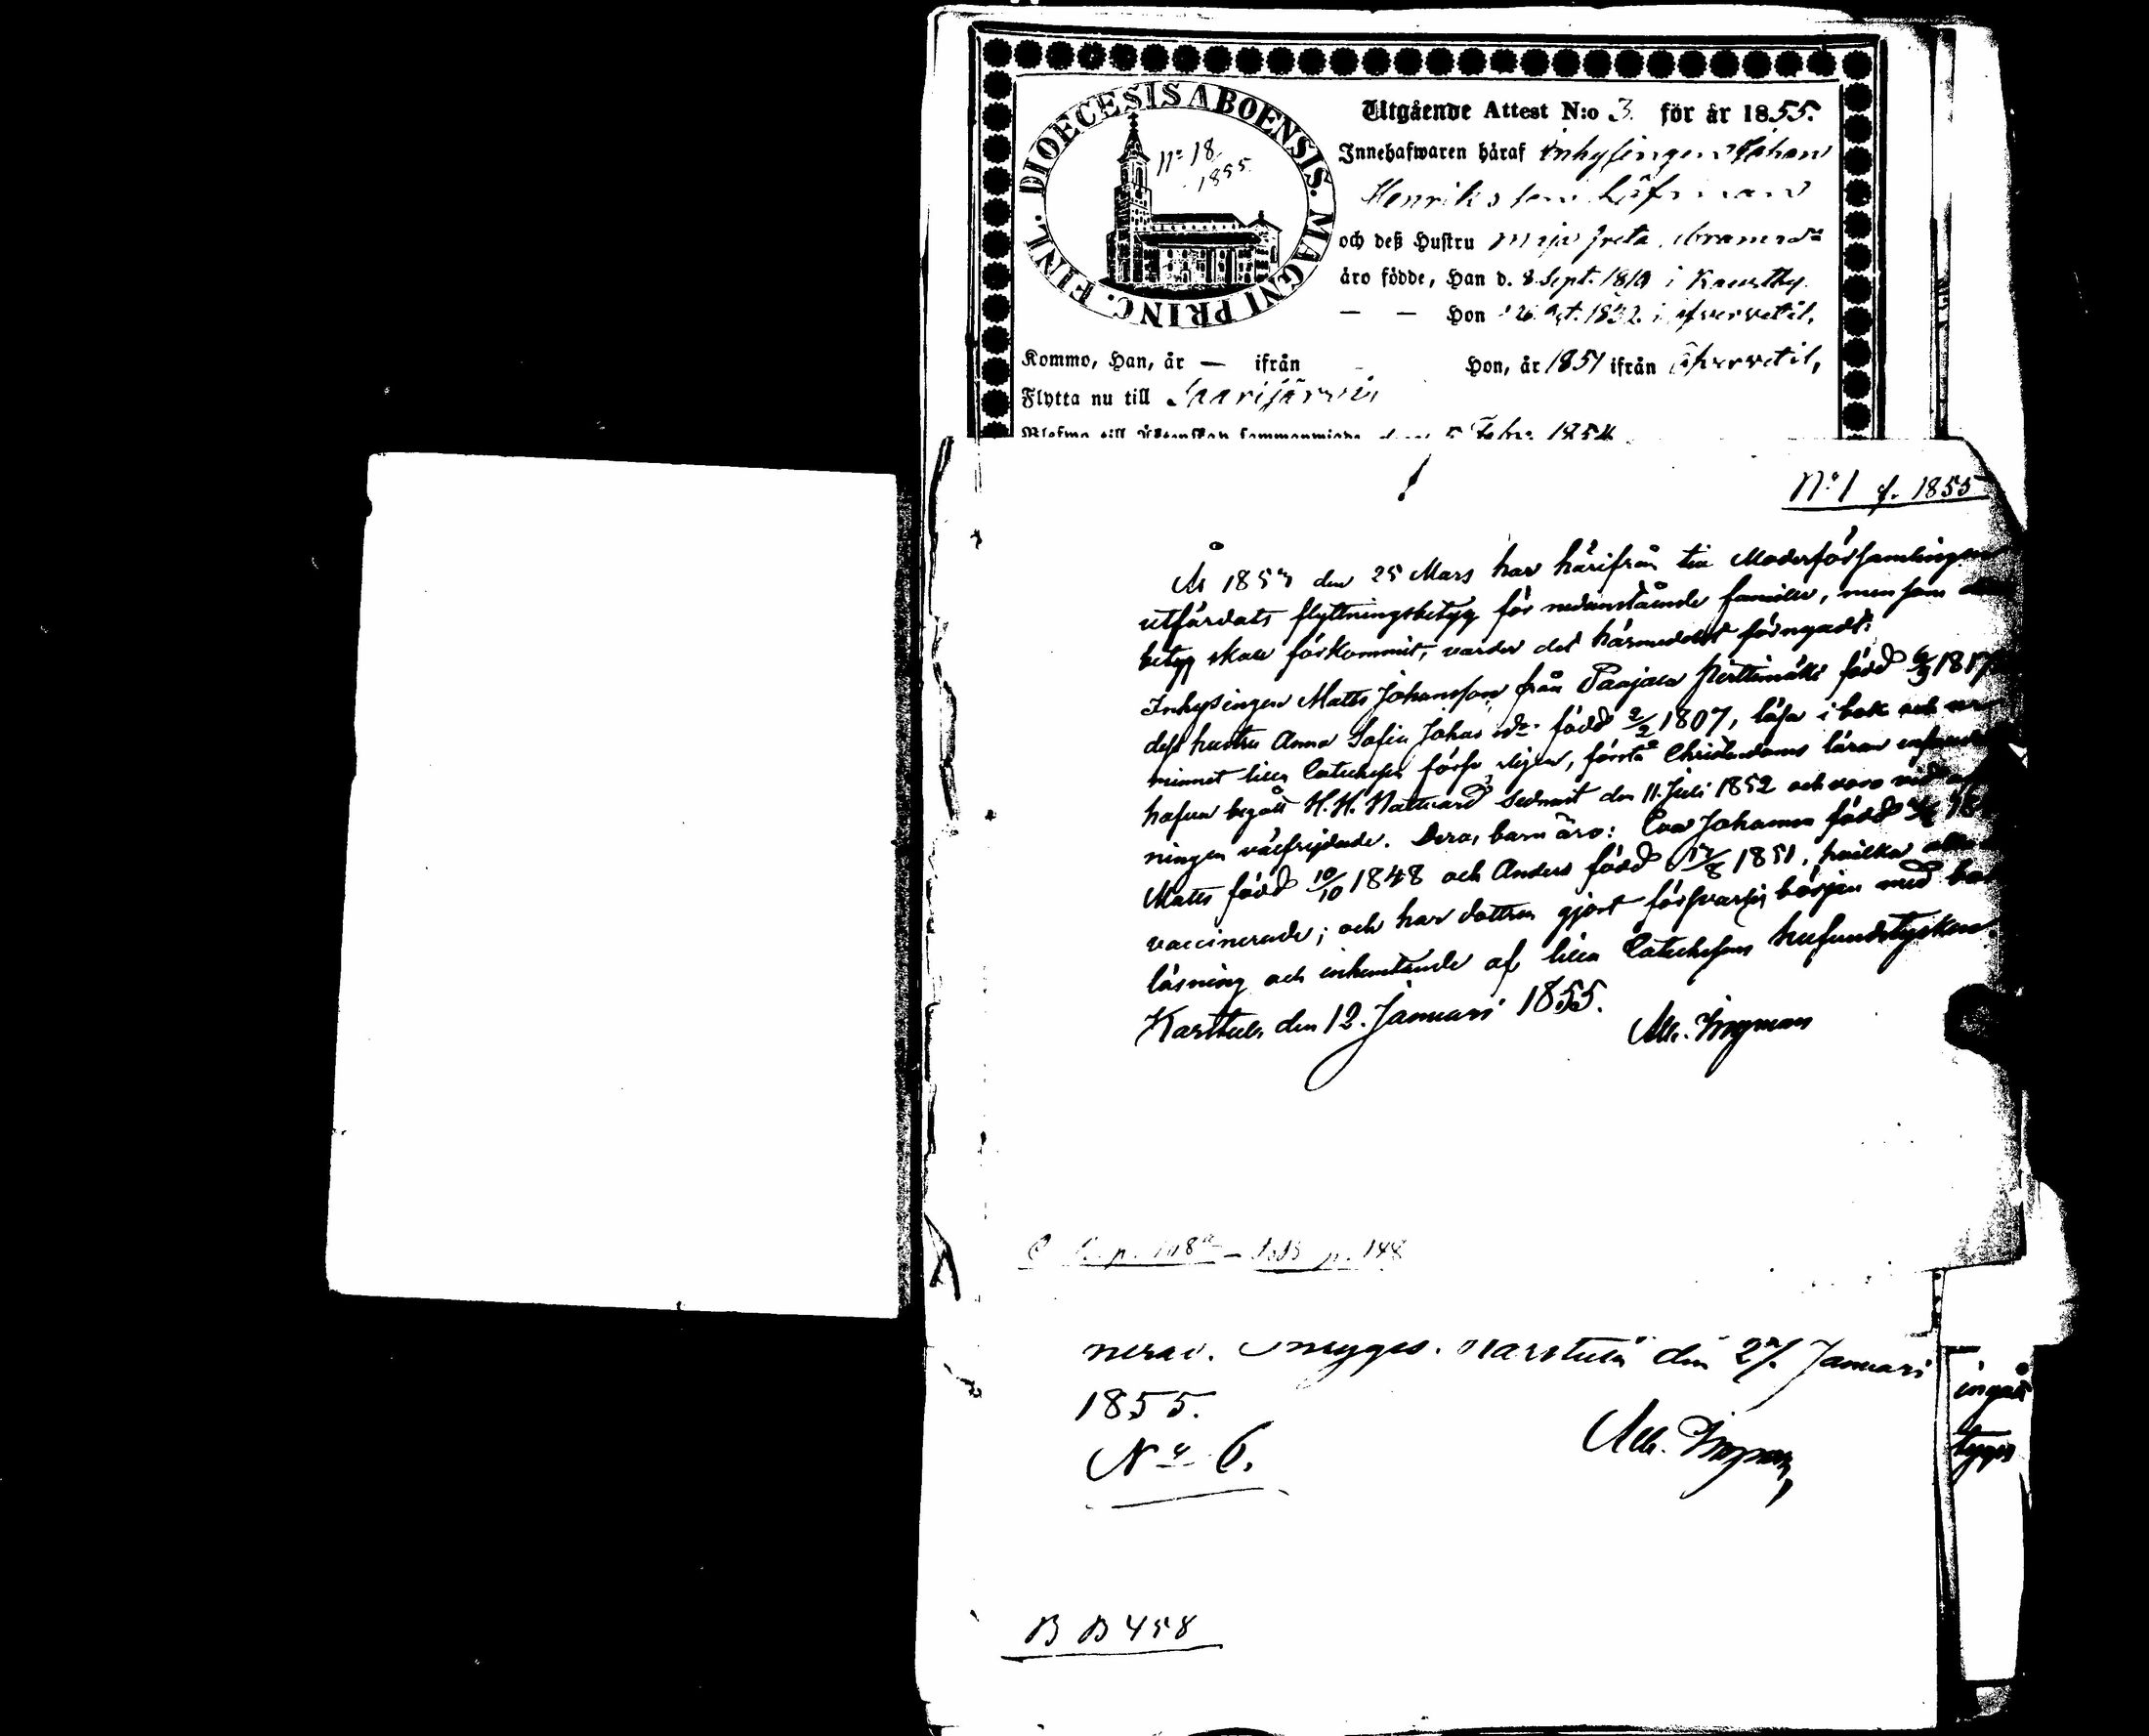 DIOECESIS ABOENSIS. MAGNI PRINC. FINL.
No 18.
1855.
Utgående Attest N:o 3. för år 1855.
Innehafwaren häraf inhysingen Johan
Henriksson Löfman
och deß Hustru Maja Greta
äro födde, Han d. 8 Sept. 1819 i Kaustby.
— — Hon i
Kommo, Han, år — ifrån Hon, år 1851 ifrån öfvervetil,
Flytta nu till Saarijärvi
5 Febr. 1854
No 1 f. 1855
År 1853 den 25 Mars har härifrån till Moderförsamlingen
utfärdats flyttningsbetyg för nedanstående familie, men som
betyg skall förkommit, varder det härmedelst förnyadt:
Inhysingen Matts Johansson från Paajala Perttimäki född 1817
dess hustru Anna Sofia Johans dr född 2/2 1807, läsa i bok och
minnet lilla Catechesen, förstå Christendoms läran
hafva begått H. H. Nattvard sednast den 11 Juli 1852 och voro
ningen välfrejdade. Deras barn äro: Eva Johanna född
Matts född 10/10 1848 och Anders född 17/8 1851, hvilka
vaccinerade; och har dottren gjort försvarlig början med
läsning och inhemtande af lilla Catechesens hufvudstycken.
Karstula den 12. Januari 1855.
Alb. Ingman
p. 148
Karstula den 27. Januari
1855.
No 6.
Alb. Ingman
B B 458